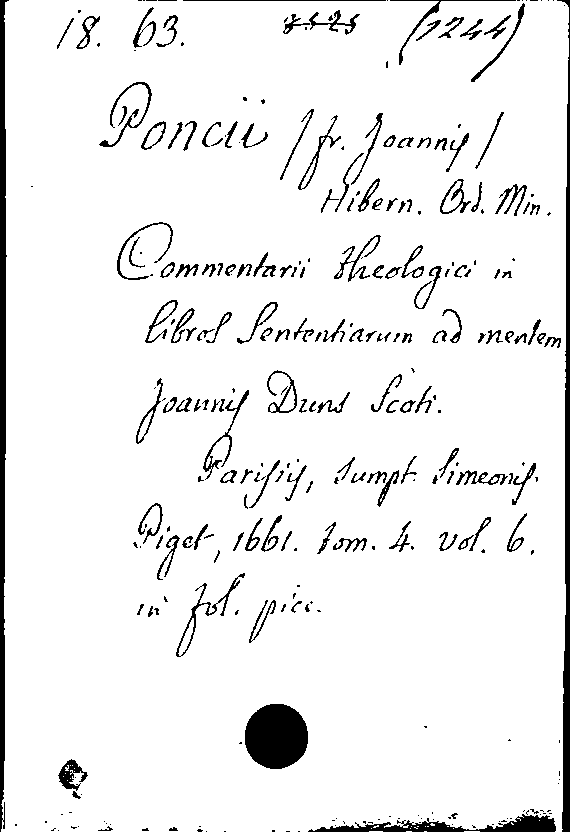 18. 63. (1244)
Poncii /fr. Joannis/
Hibern. Ord. Min.
Commentarii theologici in
libros Sententiarum ad mentem
Joannis Duns Scoti.
Parisiis, sumpt. Simeonis.
Piget, 1661. tom. 4. vol. 6.
in fol. picc.